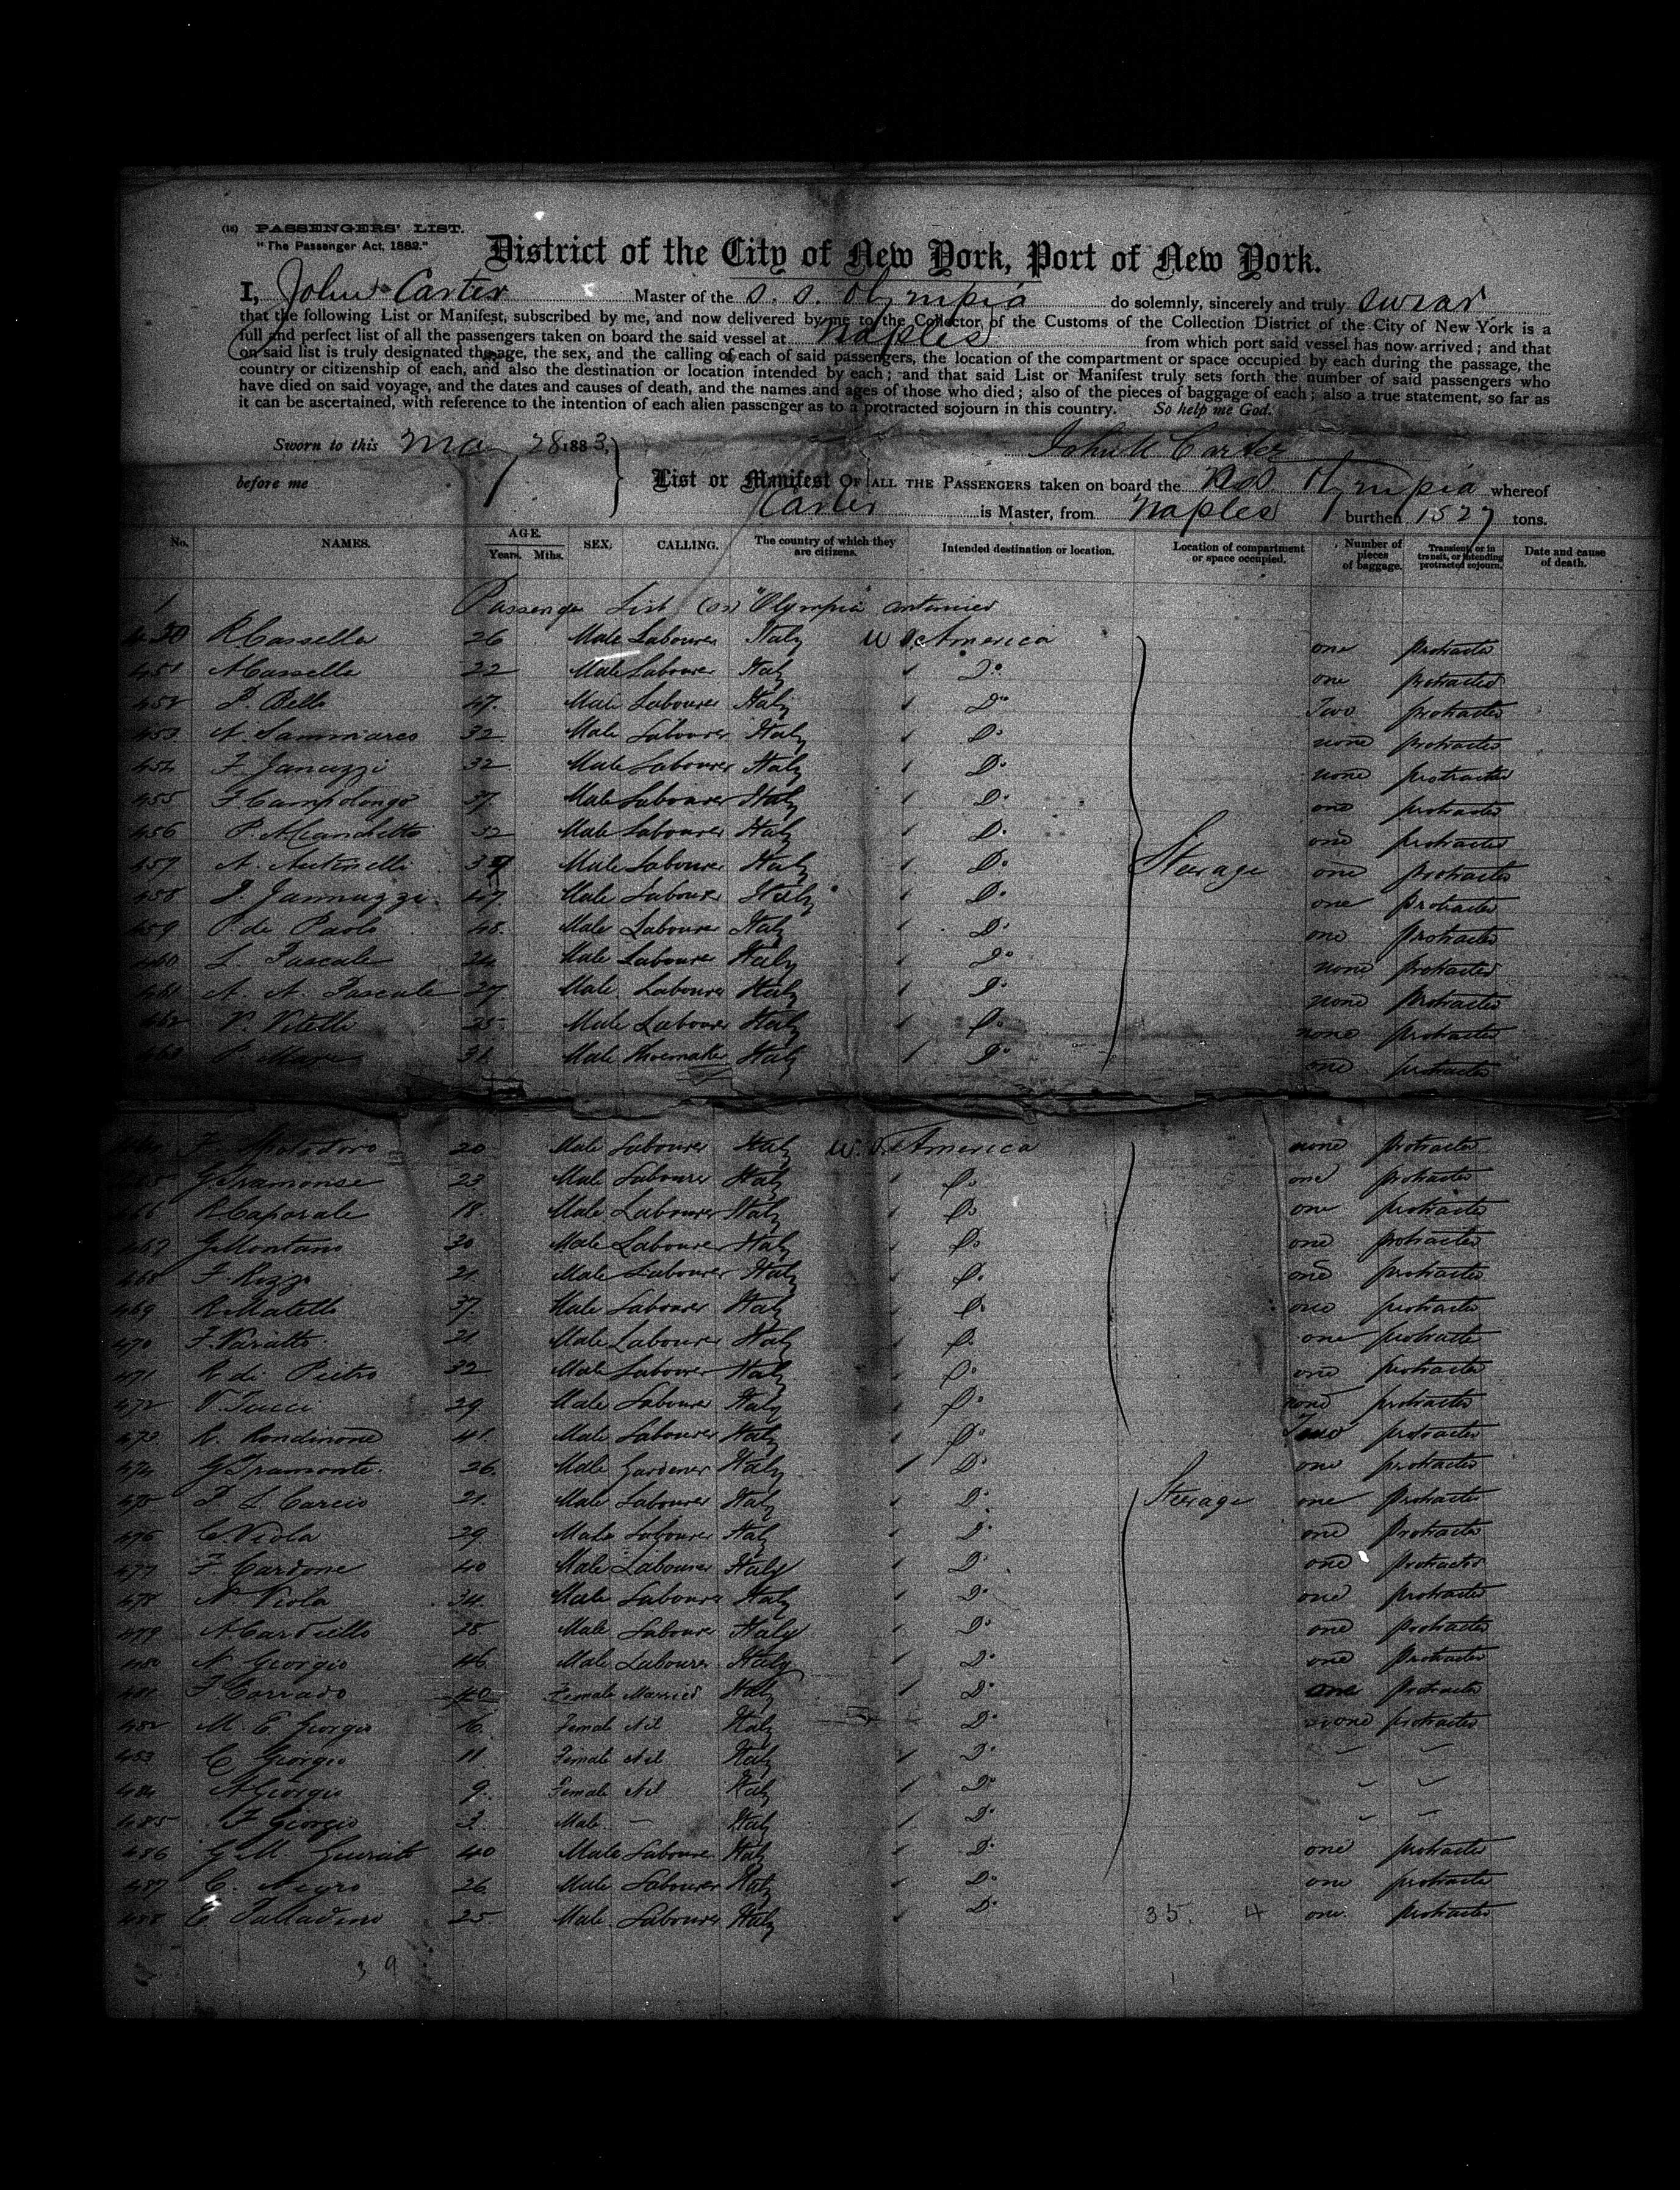 (16) PASSENGERS' LIST.
"The Passenger Act, 1882."
District of the City of New York, Port of New York.
I, John Carter Master of the S. S. Olympia do solemnly, sincerely and truly swear
that the following List or Manifest, subscribed by me, and now delivered by me to the Collector of the Customs of the Collection District of the City of New York is a
full and perfect list of all the passengers taken on board the said vessel at Naples from which port said vessel has now arrived; and that
on said list is truly designated the age, the sex, and the calling of each of said passengers, the location of the compartment or space occupied by each during the passage, the
country or citizenship of each, and also the destination or location intended by each; and that said List or Manifest truly sets forth the number of said passengers who
have died on said voyage, and the dates and causes of death, and the names and ages of those who died; also of the pieces of baggage of each; also a true statement, so far as
it can be ascertained, with reference to the intention of each alien passenger as to a protracted sojourn in this country. So help me God.
Sworn to this May 28 1883, John Carter
before me List or Manifest OF ALL THE PASSENGERS taken on board the Olympia whereof
Carter is Master, from Naples burthen 1527 tons.
No. NAMES. AGE. Years. Mths. SEX. CALLING. The country of which they are citizens. Intended destination or location. Location of compartment or space occupied. Number of pieces of baggage. Transient, or in transit, or intending protracted sojourn. Date and cause of death.
1 Passenger List (ss) "Olympia" continued
450 R Cassella 26 Male Labourer Italy U S America one protracted
451 A Cassella 22 Male Labourer Italy Do one protracted
452 P. Bello 47 Male Labourer Italy Do Two protracted
453 N. Sammarco 32 Male Labourer Italy Do none protracted
454 F. Januzzi 32 Male Labourer Italy Do none protracted
455 F. Campolongo 37 Male Labourer Italy Do one protracted
456 P. 32 Male Labourer Italy Do one protracted
457 A. Antonelli Male Labourer Italy Do Steerage one protracted
458 Jannuzzi 47 Male Labourer Italy Do one protracted
459 P. de Paolo 45 Male Labourer Italy Do one protracted
460 L. Pascale 24 Male Labourer Italy Do none protracted
461 A. A. Pascale 27 Male Labourer Italy Do none protracted
462 V. Vitelli 25 Male Labourer Italy Do none protracted
463 P. 31 Male Shoemaker Italy Do one protracted
464 F. 20 Male Labourer Italy U. S. America none protracted
465 G. Tramonse 23 Male Labourer Italy Do one protracted
466 R Caporale 18 Male Labourer Italy Do one protracted
467 G Montano 30 Male Labourer Italy Do one protracted
468 F. Rizzo 21 Male Labourer Italy Do one protracted
469 R Matello 37 Male Labourer Italy Do one protracted
470 F. 21 Male Labourer Italy Do one protracted
471 R di Pietro 32 Male Labourer Italy Do one protracted
472 V. Tucci 29 Male Labourer Italy Do none protracted
473 R. Rondinone 41 Male Labourer Italy Do Two protracted
474 G Tramonte 26 Male Gardener Italy Do one protracted
475 P. L. Carcio 21 Male Labourer Italy Do Steerage one protracted
476 C. Viola 29 Male Labourer Italy Do one protracted
477 F. Cardone 40 Male Labourer Italy Do one protracted
478 N Viola 34 Male Labourer Italy Do one protracted
479 A Cardiello 28 Male Labourer Italy Do one protracted
480 N Georgio 46 Male Labourer Italy Do one protracted
481 F Corrado 40 Female Married Italy Do one protracted
482 M. E. Georgio 16 Female Nil Italy Do none protracted
483 C Georgio 11 Female Nil Italy Do
484 A Georgio 9 Female Nil Italy Do
485 F Giorgio 3 Male — Italy Do
486 G M. 40 Male Labourer Italy Do one protracted
487 C. Negro 26 Male Labourer Italy Do one protracted
488 E. Palladino 25 Male Labourer Italy Do 35. 4 one protracted
39